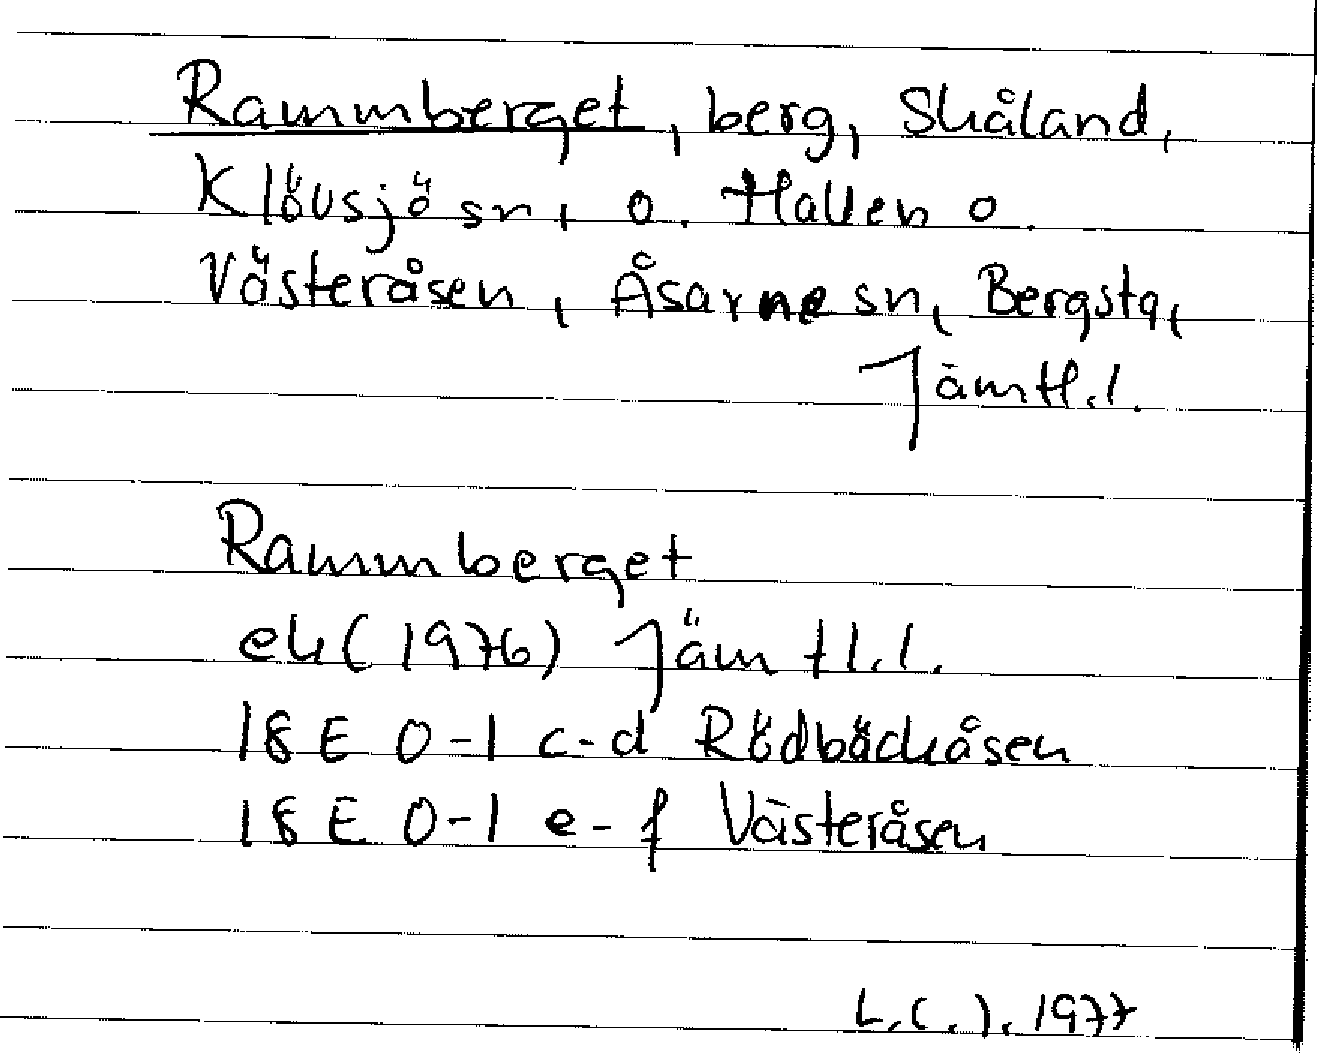 Rammberget, berg, Skåland,
Klövsjö sn, o. Hallen o.
Västeråsen, Åsarne sn, Bergstq,
Jämtl.l.
Rammberget
ek (1976) Jämtl.l.
18 E 0-1 c-d Rödbäckåsen
18 E 0-1 e-f Västeråsen
1977